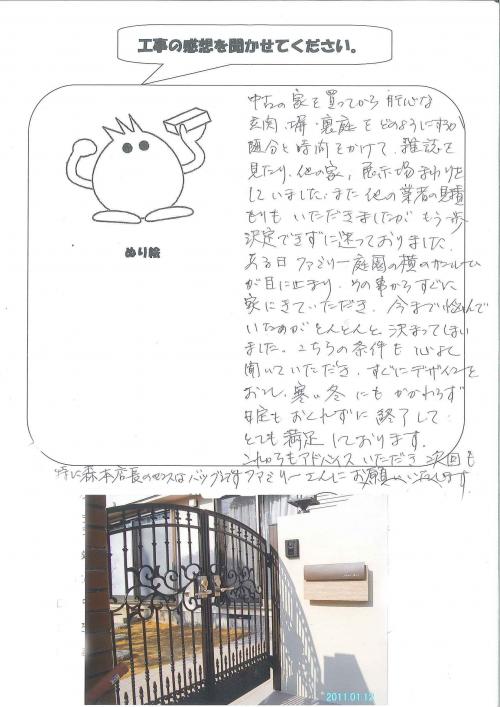 工事の感想を聞かせてください。
ぬり絵
中古の家を買ってから 肝心な
玄関、塀・裏庭をどのようにするか
随分と時間をかけて、雑誌を
見たり、他の家、展示場まわりを
していました。また他の業者の見積
もりも いただきましたが もう一歩
決定できずに迷っておりました。
ある日 ファミリー庭園の横のガンルーム
が目に止まり、その事からすぐに
家にきていただき、今まで悩んで
いたのがとんとんと 決まってしまい
ました。こちらの条件も 心よく
聞いていただき、すぐにデザインを
おこし、寒い冬にもかかわらず
日定もおくれずに 終了して
とても満足しております。
これからもアドバイスいただき 次回も
特に森本店長のセンスはバツグンです ファミリーさんに お願いいたします。
2011.01.12